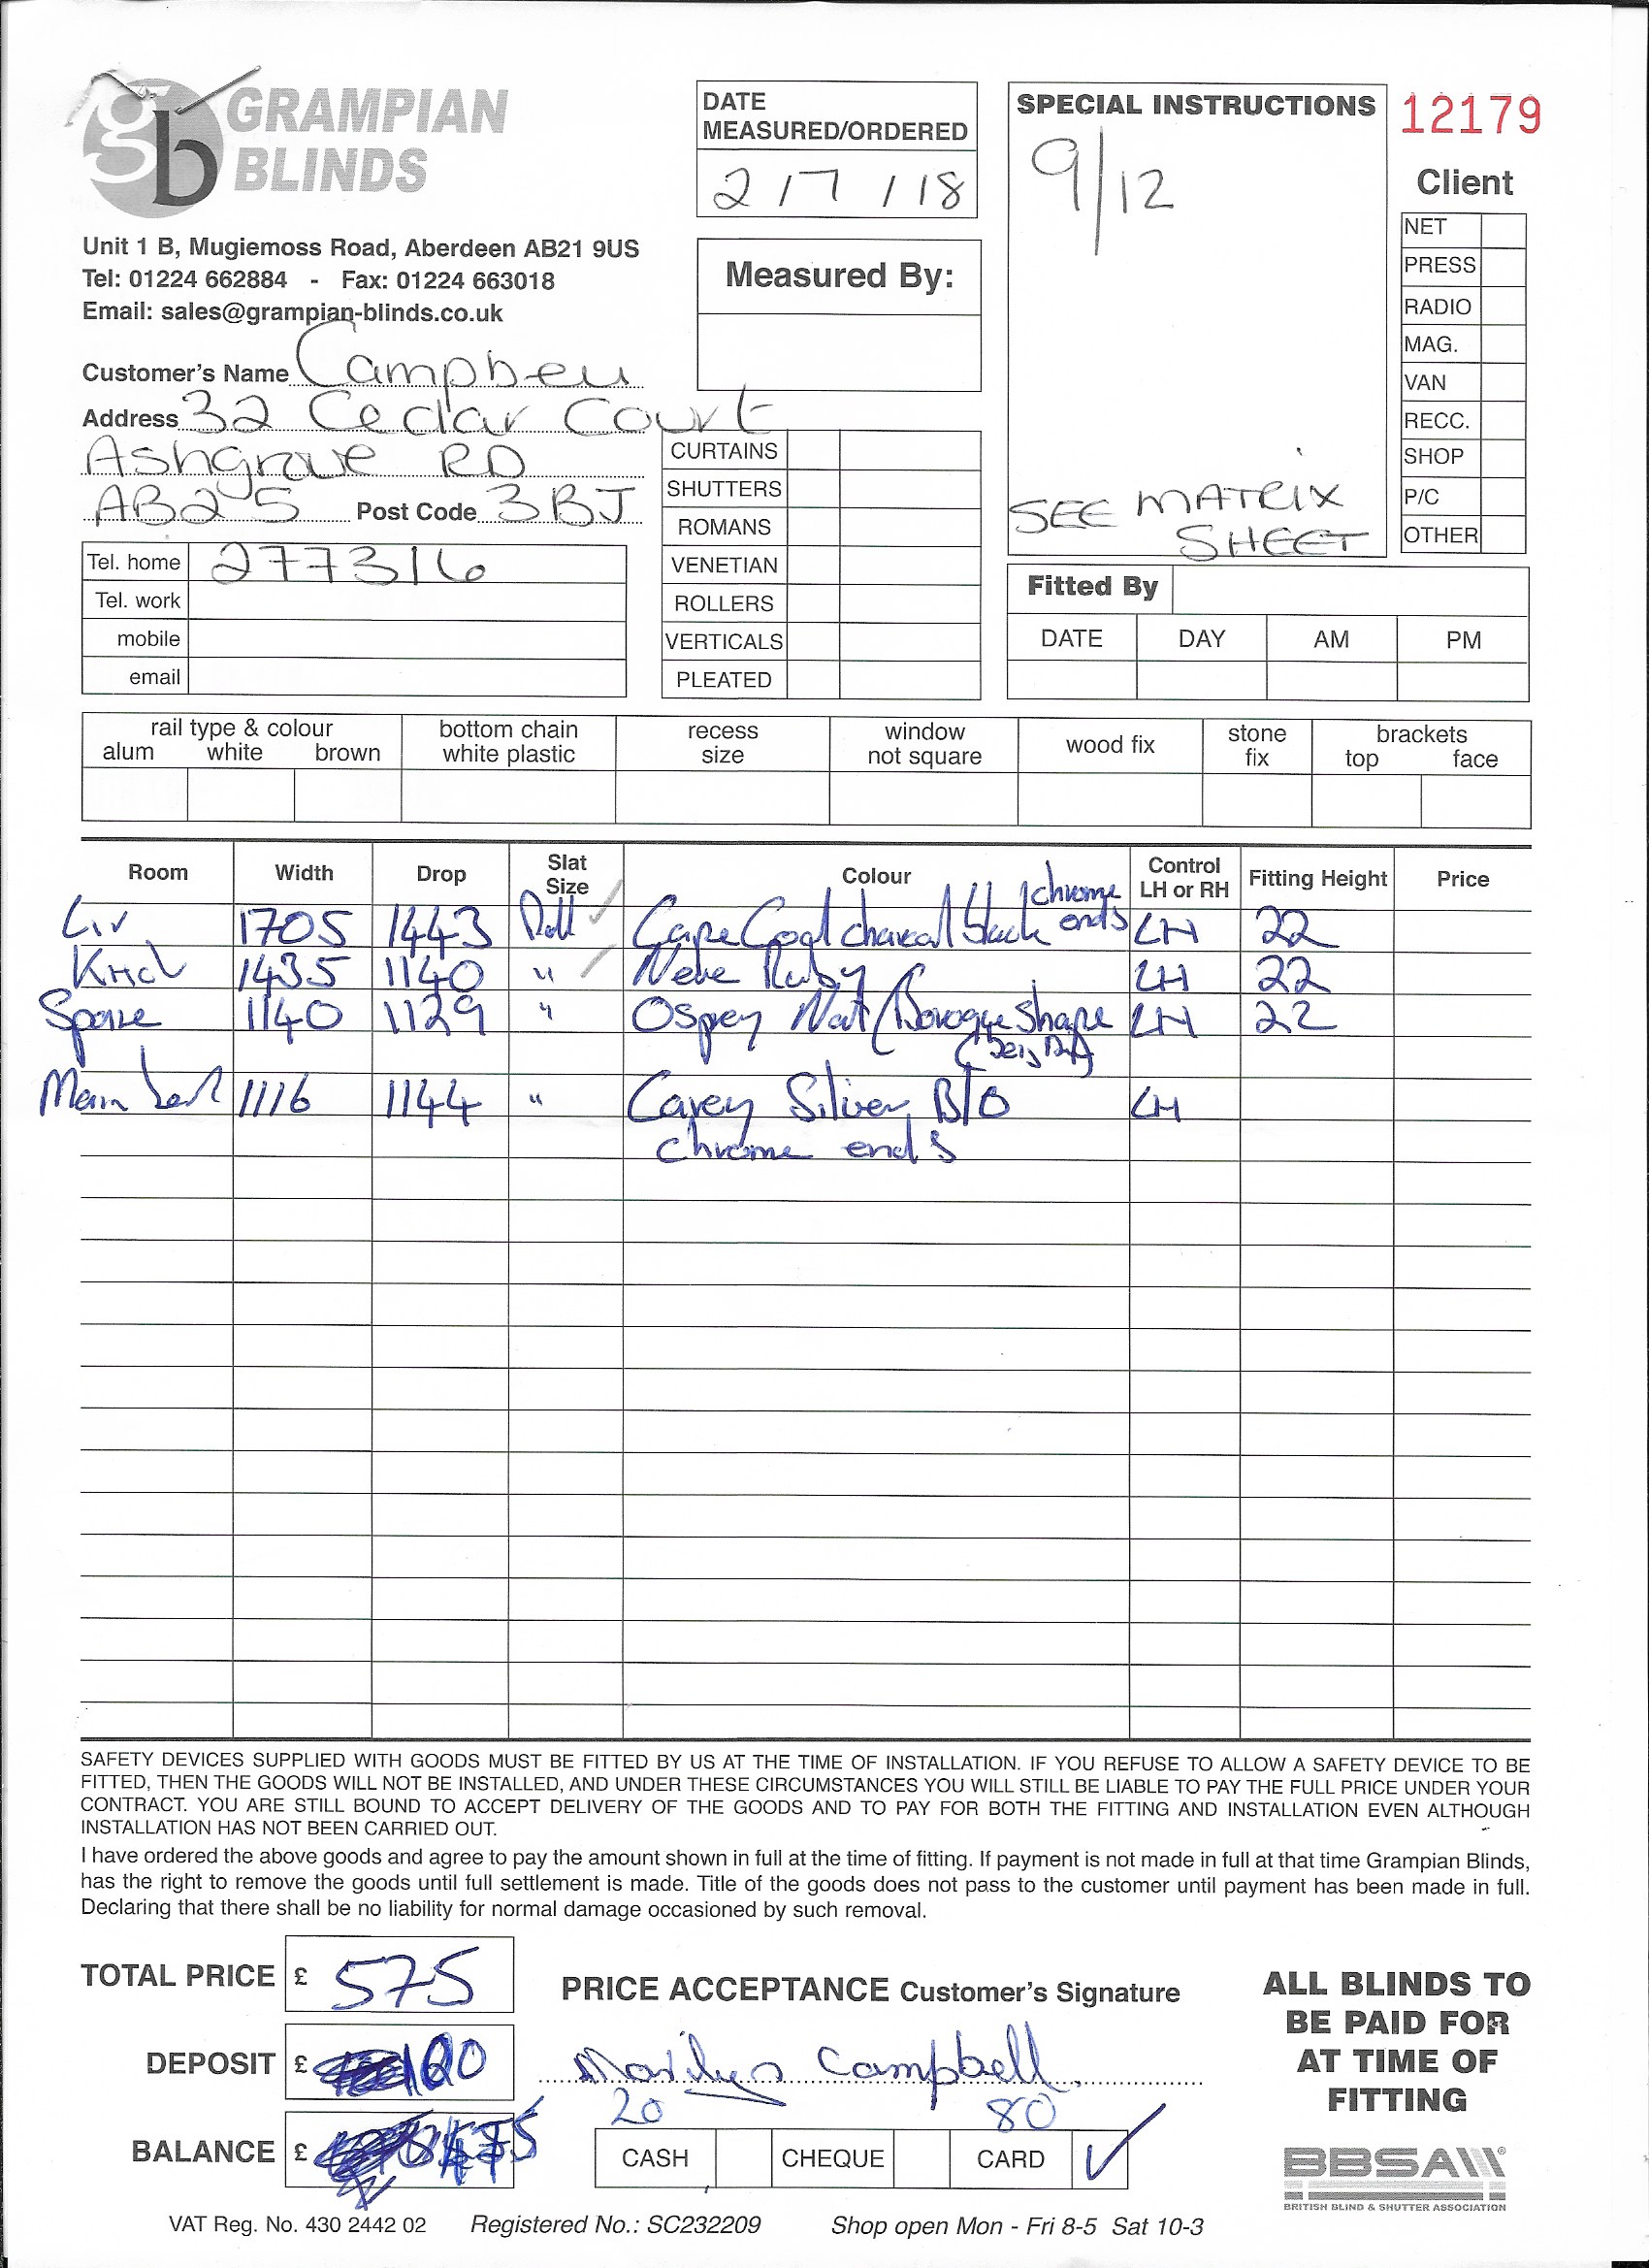 GRAMPIAN
BLINDS
gb
Unit 1 B, Mugiemoss Road, Aberdeen AB21 9US
Tel: 01224 662884 - Fax: 01224 663018
Email: sales@grampian-blinds.co.uk
DATE
MEASURED/ORDERED
2/7/18
Measured By:
SPECIAL INSTRUCTIONS
9/12
SEE MATRIX
SHEET
12179
Client
NET
PRESS
RADIO
MAG.
VAN
RECC.
SHOP
P/C
OTHER
Customer's Name Campbell
Address 32 Cedar Court
Ashgrove RD
AB25 Post Code 3BJ
Tel. home 277316
Tel. work
mobile
email
CURTAINS
SHUTTERS
ROMANS
VENETIAN
ROLLERS
VERTICALS
PLEATED
Fitted By
DATE DAY AM PM
rail type & colour
alum white brown
bottom chain
white plastic
recess
size
window
not square
wood fix
stone
fix
brackets
top face
Room Width Drop Slat Size Colour Control LH or RH Fitting Height Price
Liv 1705 1443 Roll Cape Coal charcoal black chrome ends LH 22
Kitch 1435 1140 " Ruby LH 22
Spare 1140 1129 " Osprey Nat / Baroque Shape LH 22
Main bed 1116 1144 " Carey Silver B/O LH
chrome ends
SAFETY DEVICES SUPPLIED WITH GOODS MUST BE FITTED BY US AT THE TIME OF INSTALLATION. IF YOU REFUSE TO ALLOW A SAFETY DEVICE TO BE
FITTED, THEN THE GOODS WILL NOT BE INSTALLED, AND UNDER THESE CIRCUMSTANCES YOU WILL STILL BE LIABLE TO PAY THE FULL PRICE UNDER YOUR
CONTRACT. YOU ARE STILL BOUND TO ACCEPT DELIVERY OF THE GOODS AND TO PAY FOR BOTH THE FITTING AND INSTALLATION EVEN ALTHOUGH
INSTALLATION HAS NOT BEEN CARRIED OUT.
I have ordered the above goods and agree to pay the amount shown in full at the time of fitting. If payment is not made in full at that time Grampian Blinds,
has the right to remove the goods until full settlement is made. Title of the goods does not pass to the customer until payment has been made in full.
Declaring that there shall be no liability for normal damage occasioned by such removal.
TOTAL PRICE £ 575
DEPOSIT £ 100
BALANCE £ 475
PRICE ACCEPTANCE Customer's Signature
Marilyn Campbell
20 80
CASH CHEQUE CARD ✓
ALL BLINDS TO
BE PAID FOR
AT TIME OF
FITTING
BBSA
BRITISH BLIND & SHUTTER ASSOCIATION
VAT Reg. No. 430 2442 02 Registered No.: SC232209 Shop open Mon - Fri 8-5 Sat 10-3